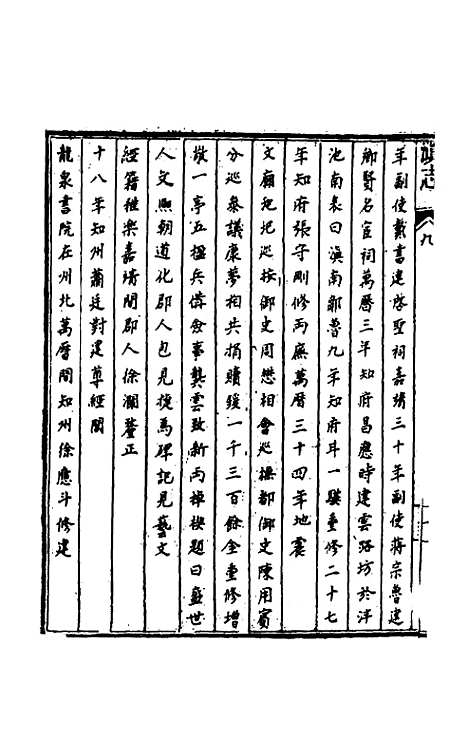 滇志
九
年副使戴書建啓聖祠嘉靖三十年副使蔣宗魯建
鄉賢名宦祠萬曆三年知府昌應時建雲路坊於泮
池南表曰滇南鄒魯九年知府耳一騤重修二十七
年知府張守剛修兩廡萬曆三十四年地震
文廟圮圮巡按御史周懋相會巡撫都御史陳用賓
分巡參議康夢相共捐贖鍰一千三百餘金重修增
敞一亭五楹兵備僉事龔雲致新兩棹楔題曰盛世
人文熙朝道化郡人包見捷為碑記見藝文
經籍雅樂嘉靖間郡人徐瀾釐正
十八年知州蕭廷對建尊經閣
龍泉書院在州北萬曆間知州徐應斗修建